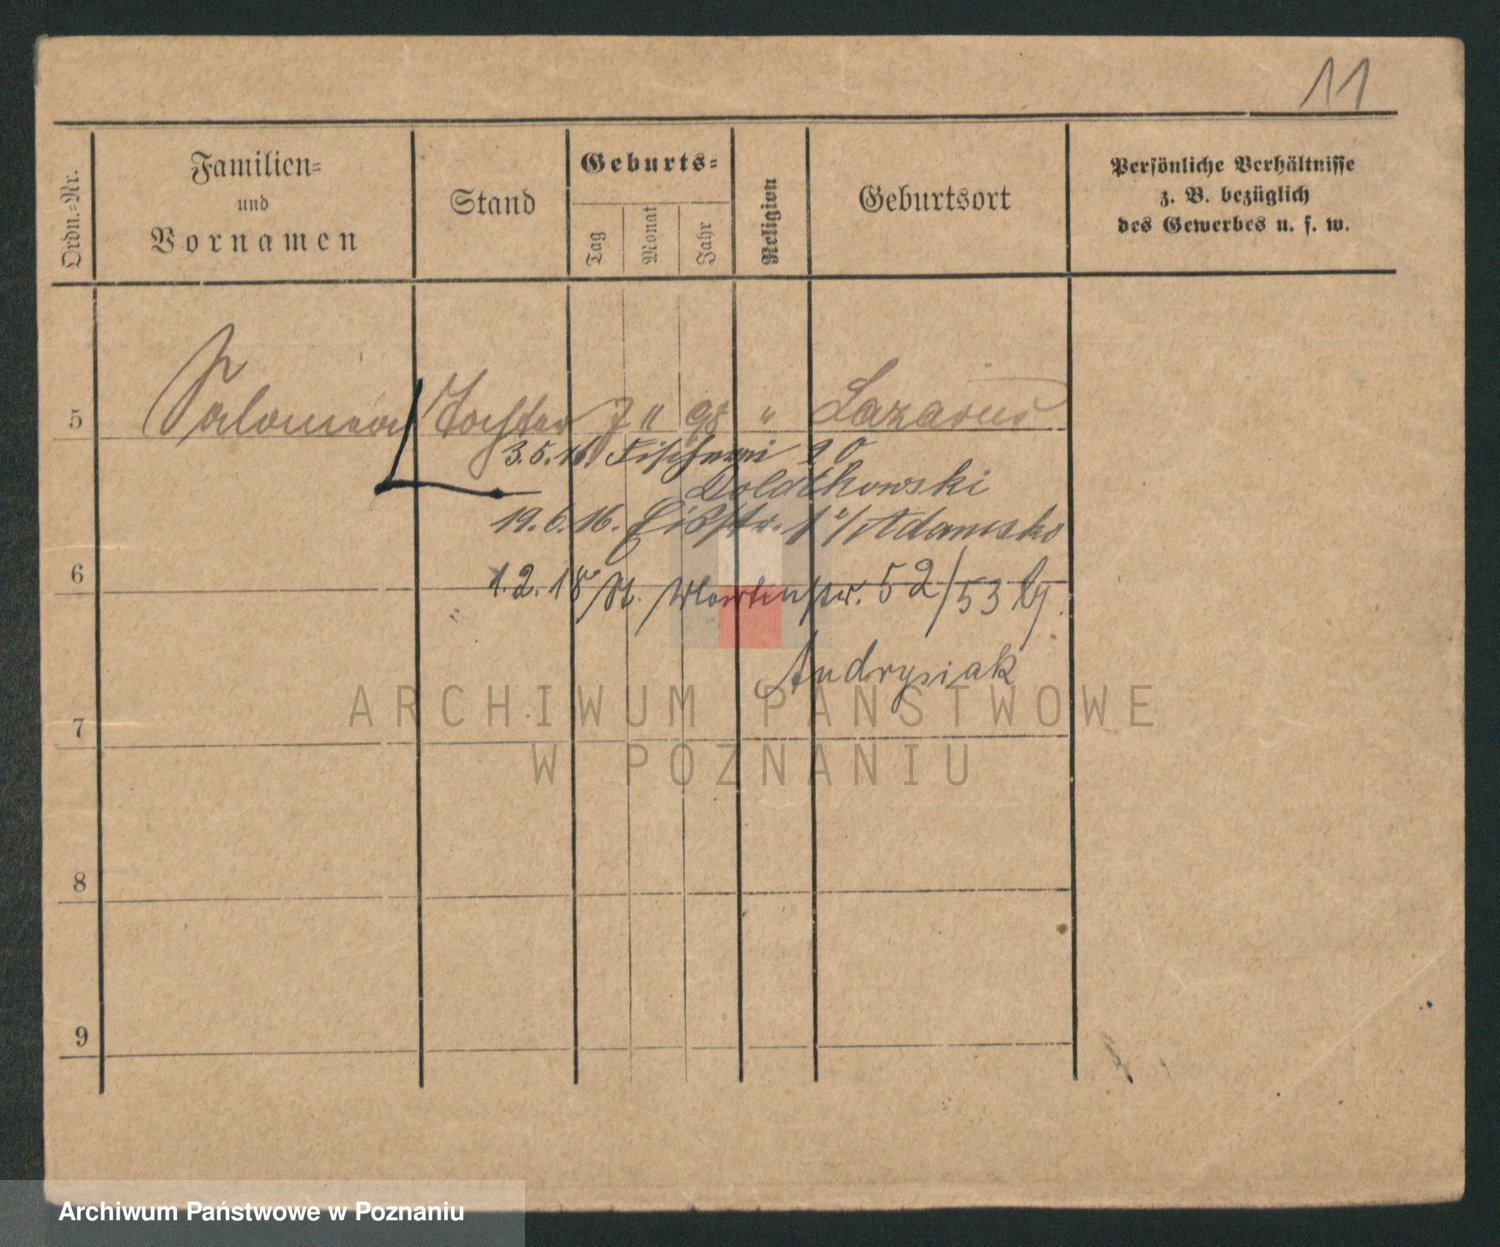 11
Ordn.-Nr.
Familien-
und
Vornamen
Stand
Geburts-
Tag
Monat
Jahr
Religion
Geburtsort
Persönliche Verhältnisse
z. B. bezüglich
des Gewerbes u. s. w.
5 Salomea Tochter 7 11 98 " Lazarus
3.5.16. Fischerei 20
19.6.16. 1 Adamsko
6
1.2.18 St. Martinstr. 52/53
Andrysiak
ARCHIWUM PAŃSTWOWE
W POZNANIU
7
8
9
Archiwum Państwowe w Poznaniu